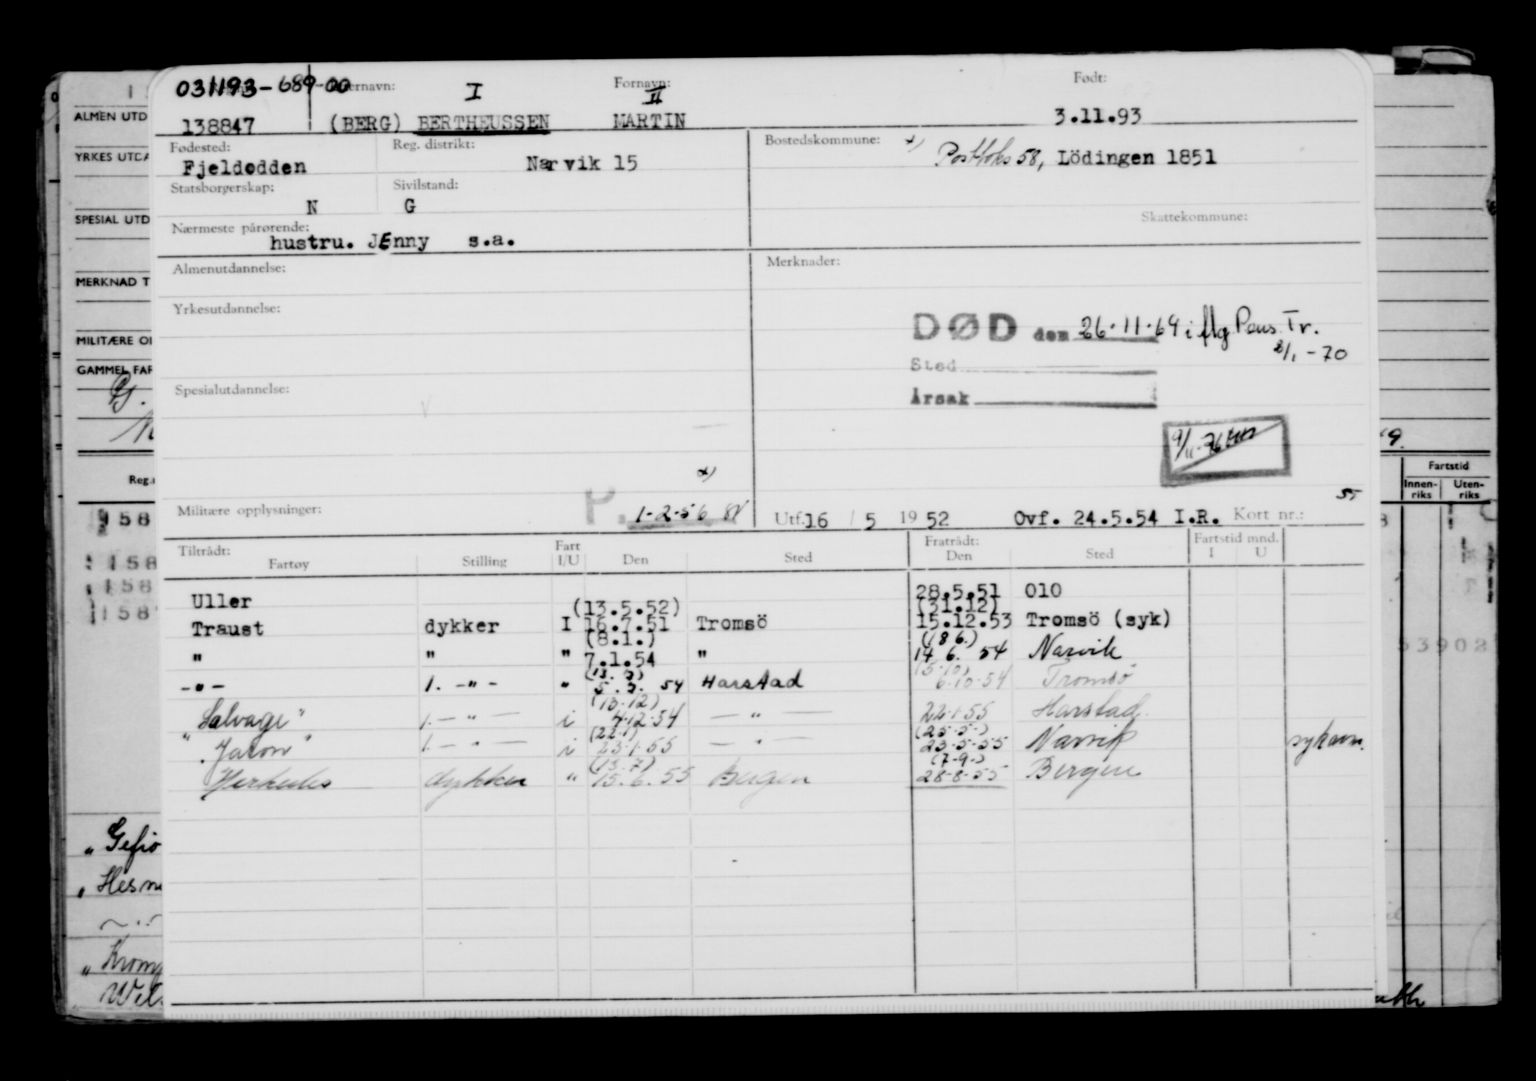 031193-689-00 Etternavn: I Fornavn: II Født:
138847 (BERG) BERTHEUSSEN MARTIN 3.11.93
Fødested: Reg. distrikt: Bostedskommune: x)
Fjeldodden Narvik 15 Postboks 58, Lödingen 1851
Statsborgerskap: Sivilstand:
N G
Skattekommune:
Nærmeste pårørende:
hustru. JEnny s.a.
Almenutdannelse: Merknader:
Yrkesutdannelse:
DØD den 26-11-64 i flg Pens.Tr.
2/1-70
Sted
Spesialutdannelse:
Årsak
9/11-76
x)
Militære opplysninger: P. 1-2-56 Utf. 16 / 5 1952 Ovf. 24.5.54 I.R. Kort nr.: 55
Tiltrådt: Fratrådt: Fartstid mnd.
Fartøy Stilling Fart I/U Den Sted Den Sted I U
Uller 28.5.51 010
(13.5.52) (31.12)
Traust dykker I 16.7.51 Tromsö 15.12.53 Tromsö (syk)
(8.1.) (18 6.)
" " " 7.1.54 " 14 6. 54 Narvik
(5-10)
-"- 1. -"- " 5. 54 Harstad 6-10-54 Tromsö
(13-12)
"Salvage" 1. -"- i 4-12-54 -"- 22-1-55 Harstad
(22-1) (25-5-)
"Jason" 1. -"- i 23-1-55 -"- 23-5-55 Narvik sykavm.
(13-7) (7-9-)
Herkules dykker " 15.6.55 Bergen 28-8-55 Bergen
ALMEN UTD
YRKES UTDA
SPESIAL UTD
MERKNAD T
MILITÆRE O
GAMMEL FAR
Reg.
158
158
158
158
"Gefio
"Hesn
"Krom
Wil
Fartstid
Innen-riks Uten-riks
53902